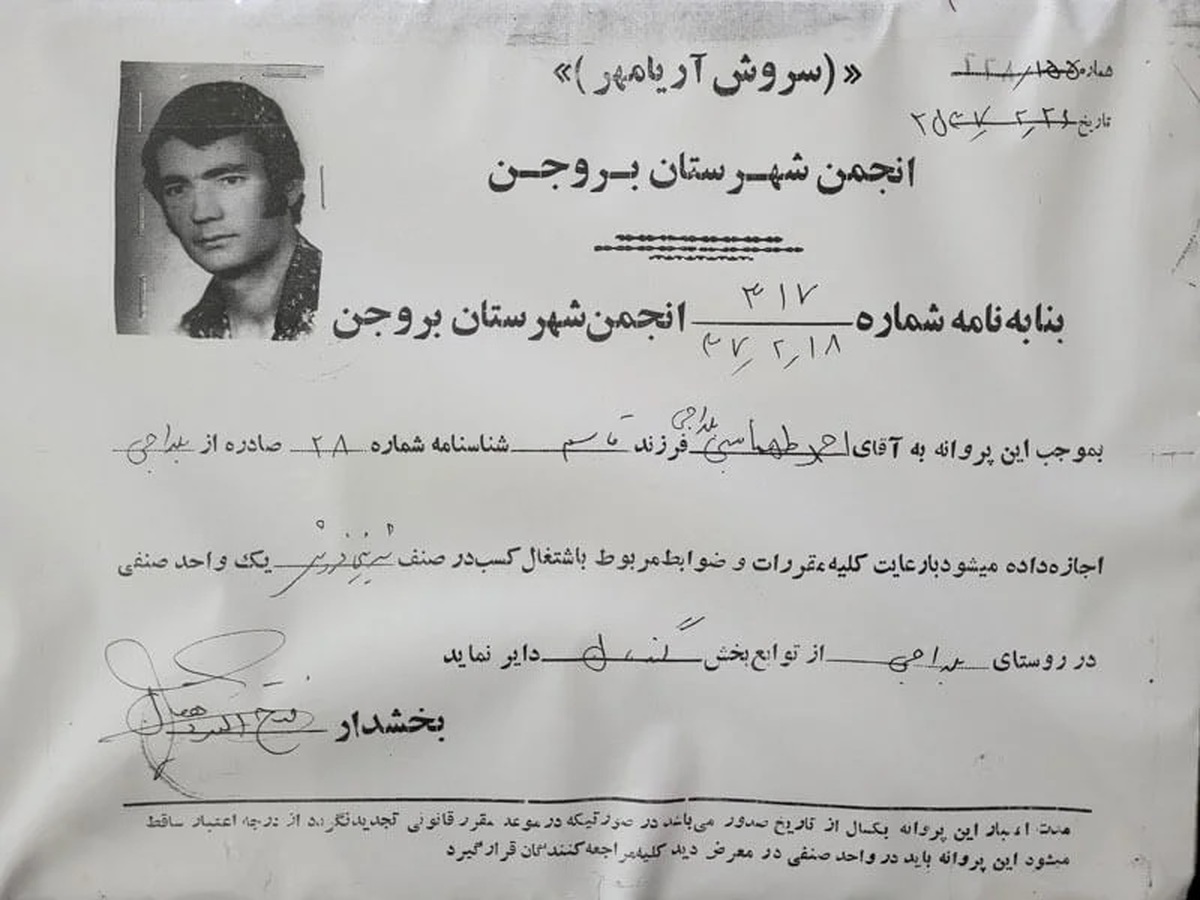 « (سروش آریامهر) »
شماره ۲۲۸/۱۵۵
تاریخ ۲۵۳۷/۲/۲۱
انجمن شهرستان بروجن
بنابه نامه شماره ۳۱۷ ۳۷/۲/۱۸ انجمن شهرستان بروجن
بموجب این پروانه به آقای احمد طهماسبی بلداجی فرزند قاسم شناسنامه شماره ۲۸ صادره از بلداجی
اجازه داده میشود با رعایت کلیه مقررات و ضوابط مربوط باشتغال کسب در صنف شیرینی فروشی یک واحد صنفی
در روستای بلداجی از توابع بخش گندمان دایر نماید
بخشدار
مدت اعتبار این پروانه یکسال از تاریخ صدور می‌باشد در صورتیکه در موعد مقرر قانونی تجدید نگردد از درجه اعتبار ساقط
میشود این پروانه باید در واحد صنفی در معرض دید کلیه مراجعه کنندگان قرار گیرد